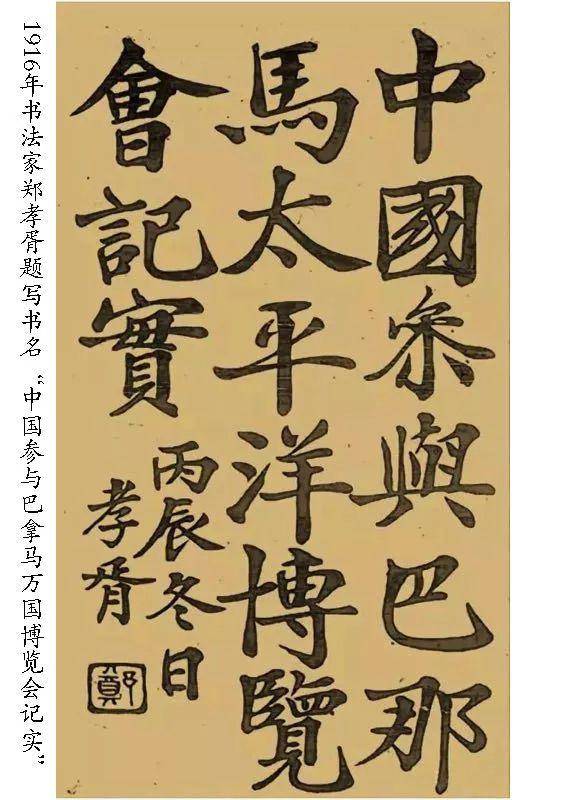 中國叅與巴那
馬太平洋博覽
會記實
丙辰冬日
孝胥
鄭
1916年书法家郑孝胥题写书名“中国参与巴拿马万国博览会记实”